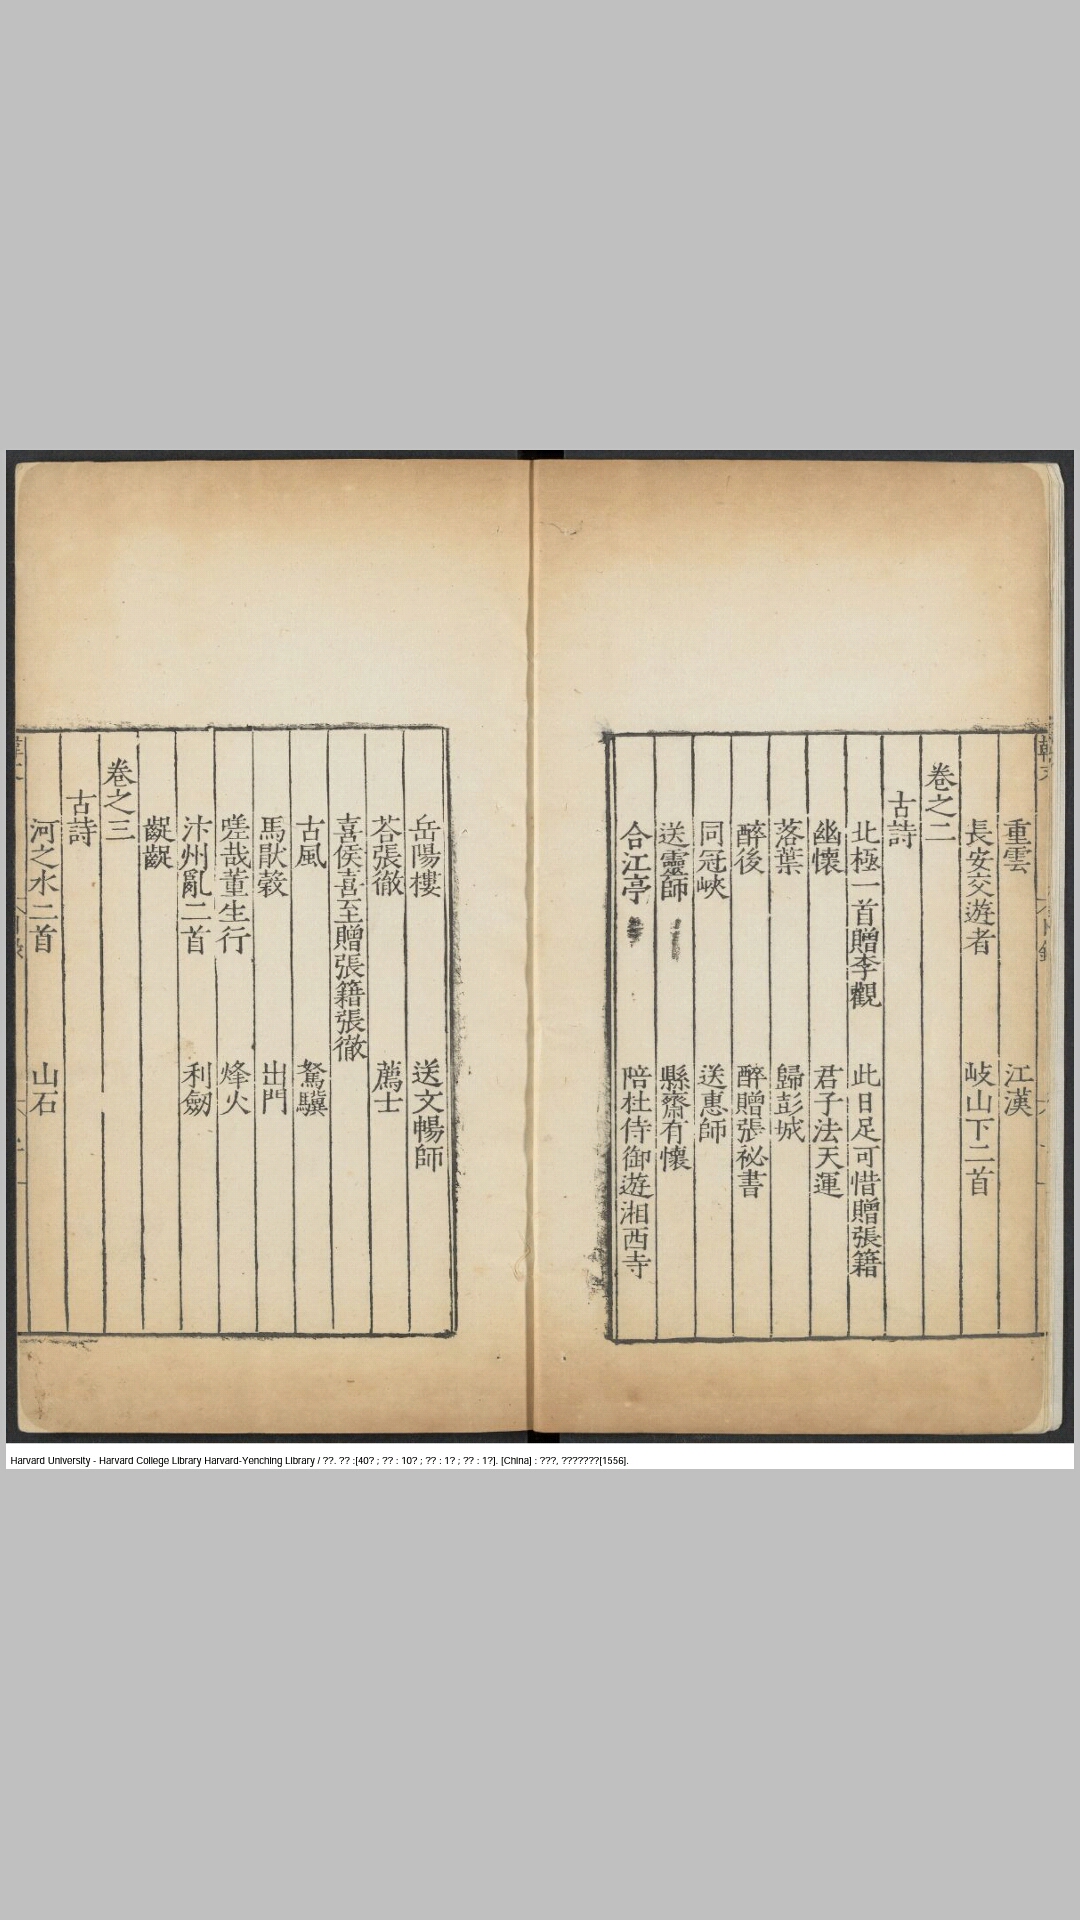 重雲　江漢
長安交遊者　岐山下二首
卷之二
古詩
北極一首贈李觀　此日足可惜贈張籍
幽懷　君子法天運
落葉　歸彭城
醉後　醉贈張祕書
同冠峽　送惠師
送靈師　縣齋有懷
合江亭　陪杜侍御遊湘西寺
岳陽樓　送文暢師
荅張徹　薦士
喜侯喜至贈張籍張徹
古風　駑驥
馬猒穀　出門
嗟哉董生行　烽火
汴州亂二首　利劒
齪齪
卷之三
古詩
河之水二首　山石
Harvard University - Harvard College Library Harvard-Yenching Library / ??. ?? :[40? ; ?? : 10? ; ?? : 1? ; ?? : 1?]. [China] : ???, ???????[1556].